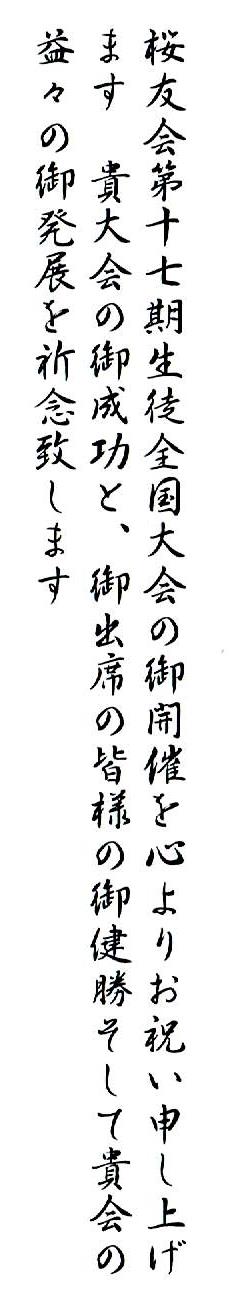 桜友会第十七期生徒全国大会の御開催を心よりお祝い申し上げ
ます　貴大会の御成功と、御出席の皆様の御健勝そして貴会の
益々の御発展を祈念致します